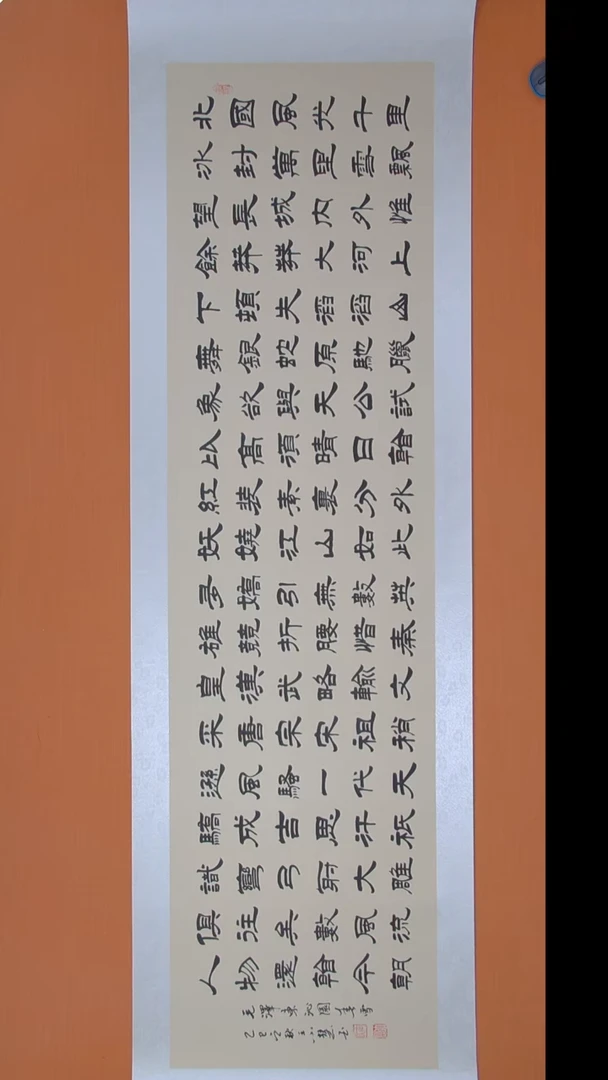 北國風光千里
冰封萬里雪飄
望長城内外惟
餘莽莽大河上
下頓失滔滔山
舞銀蛇原馳臘
象欲與天公試
比高須晴日看
紅裝素裹分外
妖嬈江山如此
多嬌引無數英
雄競折腰惜秦
皇漢武略輸文
采唐宗宋祖稍
遜風騷一代天
驕成吉思汗祇
識彎弓射大雕
俱往矣數風流
人物還看今朝
毛澤東沁園春雪
乙巳秋